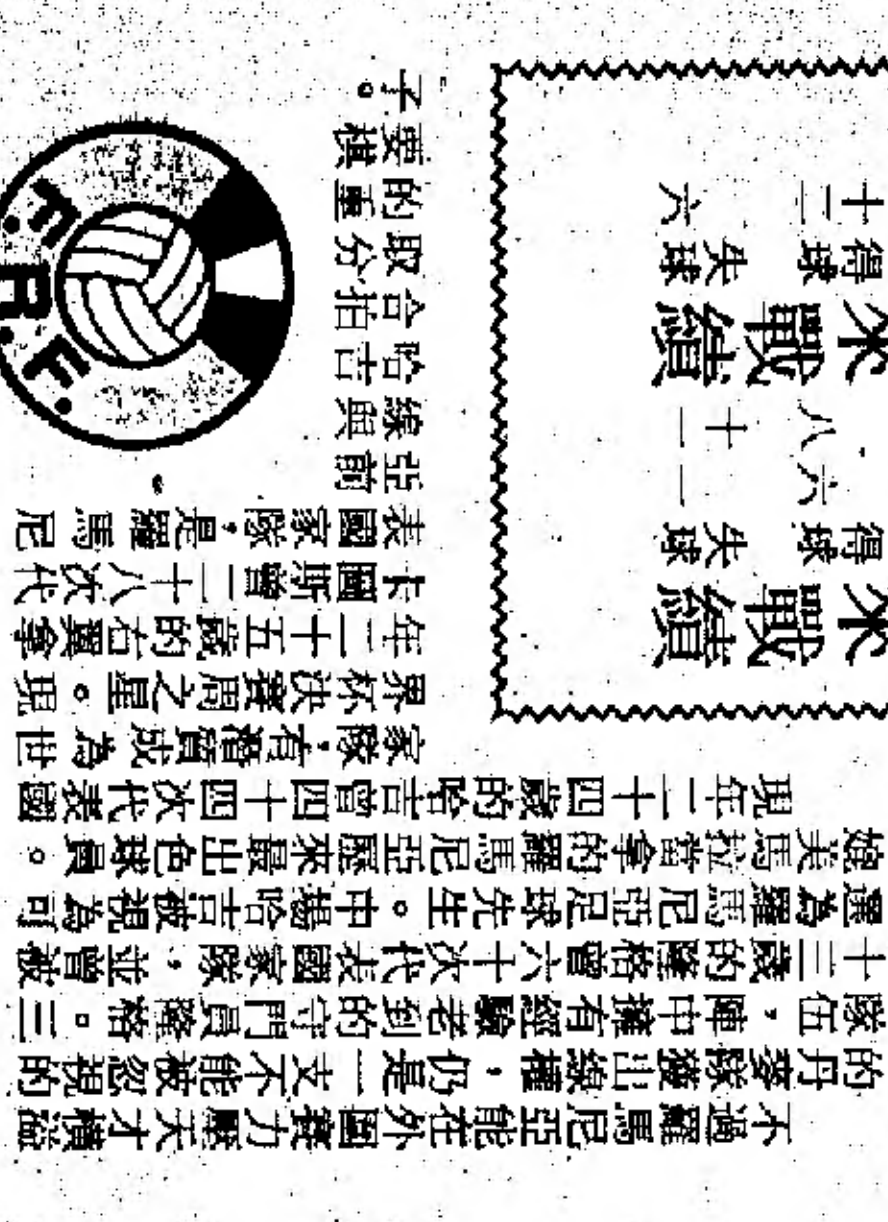 來戰績
得球 失球
來戰績
得球 失球
十二 六
不過羅馬尼亞能在外圍賽力壓天才橫溢
的丹麥隊獲出線權，仍是一支不能被忽視的
隊伍，陣中擁有經驗老到的守門員隆格。三
十三歲的隆格曾六十次代表國家隊，並曾被
選為羅馬尼亞足球先生。中場哈吉被視為可
媲美馬拉當拿的羅馬尼亞歷來最出色球員。
現年二十四歲的哈吉曾四十四次代表國
家隊，有潛質成為世
界杯決賽周之星。現
年二十五歲的右翼拿
卡圖斯曾二十八次代
表國家隊，是羅馬尼
亞前線與哈吉合拍取分的重要棋子。
F.R.F.